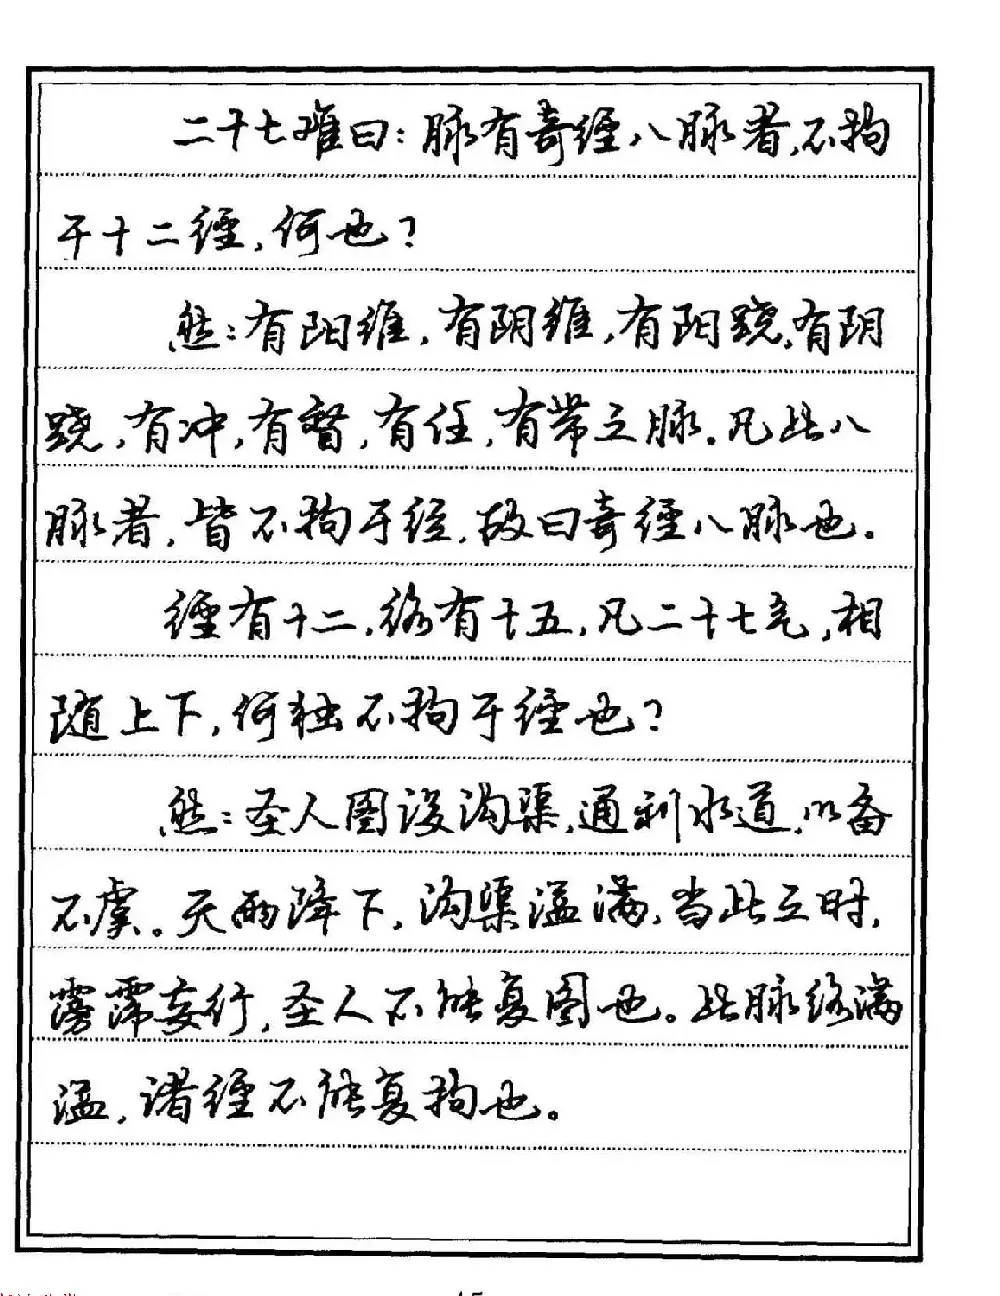 二十七难曰：脉有奇经八脉者，不拘
于十二经，何也？
然：有阳维，有阴维，有阳跷，有阴
跷，有冲，有督，有任，有带之脉。凡此八
脉者，皆不拘于经，故曰奇经八脉也。
经有十二，络有十五，凡二十七气，相
随上下，何独不拘于经也？
然：圣人图设沟渠，通利水道，以备
不虞。天雨降下，沟渠溢满，当此之时，
霶霈妄行，圣人不能复图也。此脉络满
溢，诸经不能复拘也。